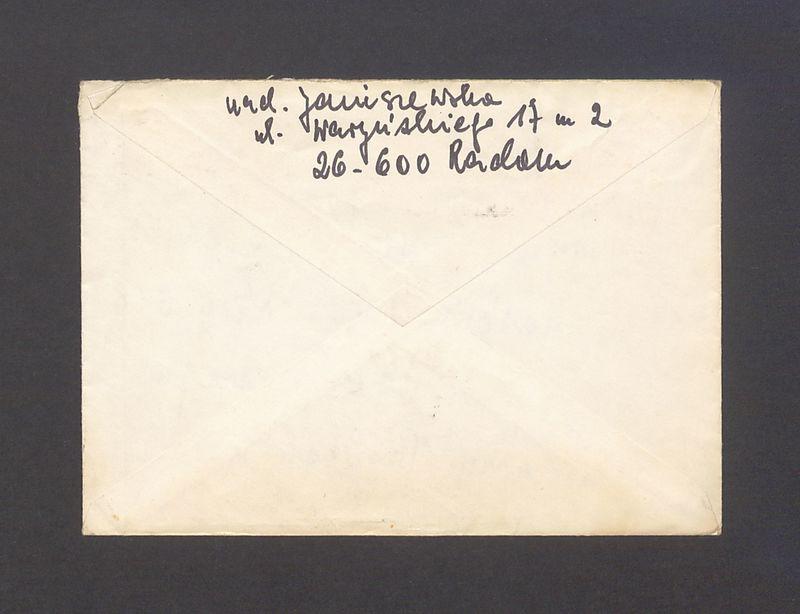 nad. Janiszewska
ul. Waryńskiego 17 m 2
26-600 Radom